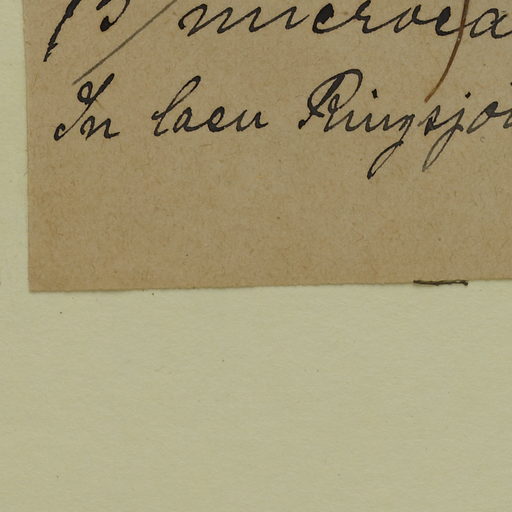 β) microca
In lacu Ringsjö